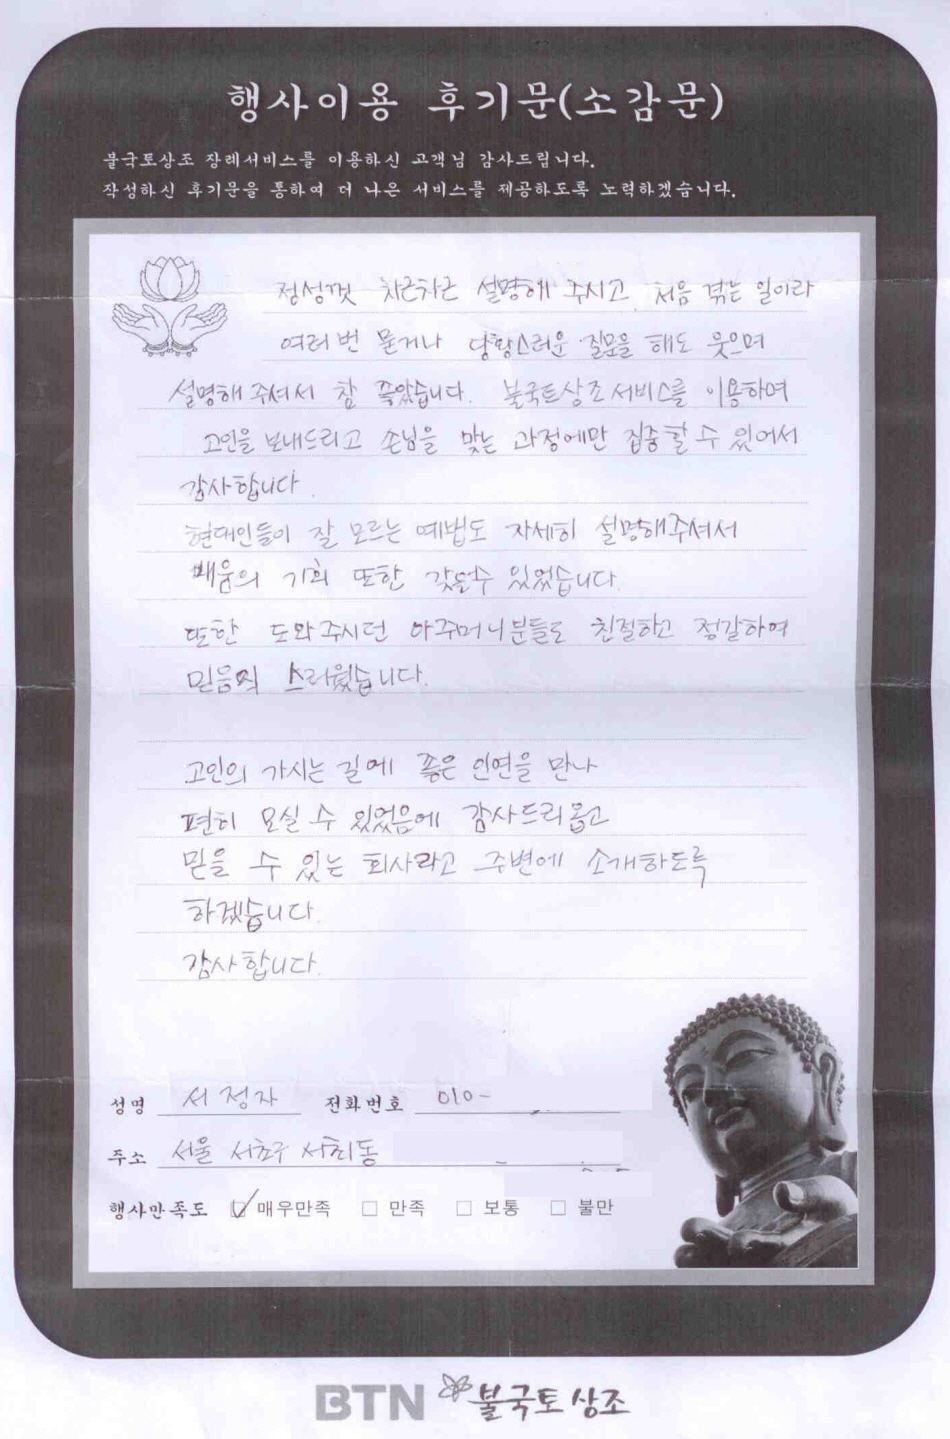 행사이용 후기문(소감문)
불국토상조 장례서비스를 이용하신 고객님 감사드립니다.
작성하신 후기문을 통하여 더 나은 서비스를 제공하도록 노력하겠습니다.
정성껏 차근차근 설명해 주시고 처음 겪는 일이라
여러번 묻거나 당황스러운 질문을 해도 웃으며
설명해 주셔서 참 좋았습니다. 불국토상조 서비스를 이용하며
고인을 보내드리고 손님을 맞는 과정에만 집중할 수 있어서
감사합니다.
현대인들이 잘 모르는 예법도 자세히 설명해주셔서
배움의 기회 또한 갖을수 있었습니다.
또한 도와주시던 아주머니분들도 친절하고 정갈하여
믿음직 스러웠습니다.
고인의 가시는 길에 좋은 인연을 만나
편히 모실 수 있었음에 감사드리옵고
믿을 수 있는 회사라고 주변에 소개하도록
하겠습니다.
감사합니다.
성명 서정자 전화번호 010-
주소 서울 서초구 서초동
행사만족도 ☑ 매우만족 □ 만족 □ 보통 □ 불만
BTN 불국토상조